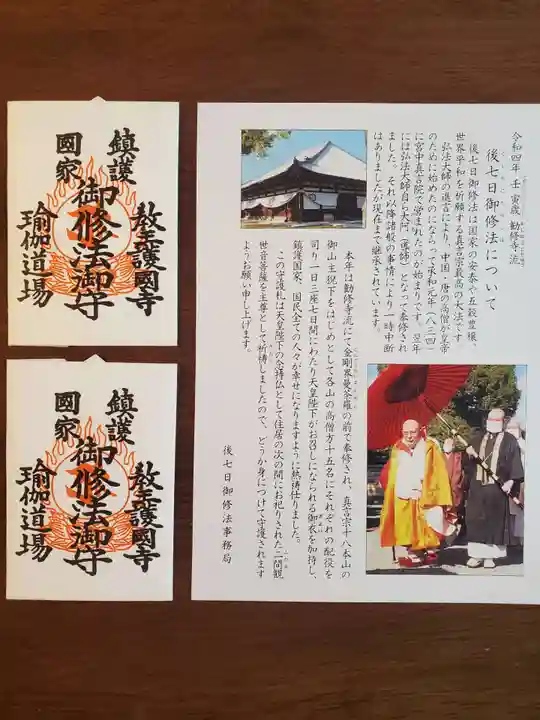 鎮護
國家
御修法御守
教王護國寺
瑜伽道場
鎮護
國家
御修法御守
教王護國寺
瑜伽道場
令和四年 壬寅歳 勧修寺流
後七日御修法について
後七日御修法は国家の安泰や五穀豊穣、
世界平和を祈願する真言宗最高の大法です。
弘法大師の進言により、中国・唐の高僧が皇帝
のために始めたのにならって承和元年(八三四)
に宮中真言院で営まれたのが始まりです。翌年
には弘法大師自ら大阿(導師)となって奉修され
ました。それ以降諸般の事情により一時中断
はありましたが現在まで継承されています。
本年は勧修寺流にて金剛界曼荼羅の前で奉修され、真言宗十八本山の
御山主猊下をはじめとして各山の高僧方十五名にそれぞれの配役を
司り一日三座七日間にわたり天皇陛下がお召しになられる御衣を加持し、
鎮護国家、国民全ての人々が幸せになりますように熱祷仕りました。
この守護札は天皇陛下の念持仏として住居の次の間にお祀りされた二間観
世音菩薩を主尊として祈祷しましたので、どうか身につけて守護されます
ようお願い申し上げます。
後七日御修法事務局